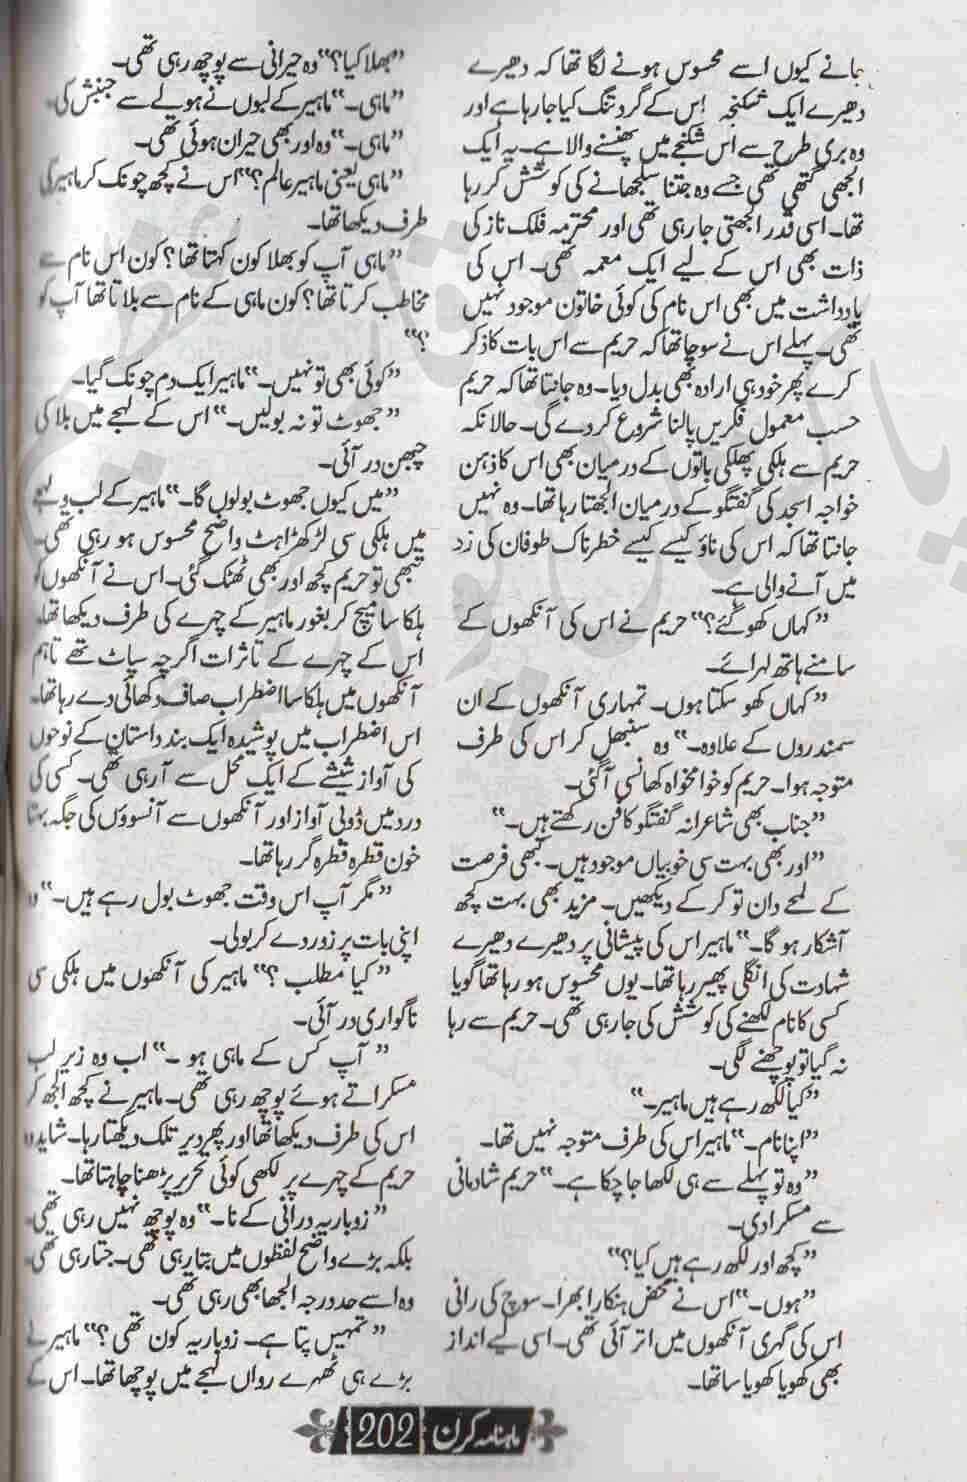 جانے کیوں اسے محسوس ہونے لگا تھا کہ دھیرے
دھیرے ایک شکنجہ اس کے گرد تنگ کیا جا رہا ہے اور
وہ بری طرح سے اس شکنجے میں پھنسنے والا ہے۔ یہ ایک
الجھی گتھی تھی جسے وہ جتنا سلجھانے کی کوشش کر رہا
تھا۔ اسی قدر الجھتی جا رہی تھی اور محترمہ فلک ناز کی
ذات بھی اس کے لیے ایک معمہ تھی۔ اس کی
یادداشت میں بھی اس نام کی کوئی خاتون موجود نہیں
تھی۔ پہلے اس نے سوچا تھا کہ حریم سے اس بات کا ذکر
کرے پھر خود ہی ارادہ بھی بدل دیا۔ وہ جانتا تھا کہ حریم
حسب معمول فکریں پالنا شروع کر دے گی۔ حالانکہ
حریم سے ہلکی پھلکی باتوں کے درمیان بھی اس کا ذہن
خواجہ اسجد کی گفتگو کے درمیان الجھتا رہا تھا۔ وہ نہیں
جانتا تھا کہ اس کی ناؤ کیسے کیسے خطرناک طوفان کی زد
میں آنے والی ہے۔
”کہاں کھو گئے؟“ حریم نے اس کی آنکھوں کے
سامنے ہاتھ لہرائے۔
”کہاں کھو سکتا ہوں۔ تمہاری آنکھوں کے ان
سمندروں کے علاوہ۔“ وہ سنبھل کر اس کی طرف
متوجہ ہوا۔ حریم کو خوامخواہ کھانسی آ گئی۔
”جناب بھی شاعرانہ گفتگو کا فن رکھتے ہیں۔“
”اور بھی بہت سی خوبیاں موجود ہیں۔ کبھی فرصت
کے لمحے دان تو کر کے دیکھیں۔ مزید بھی بہت کچھ
آشکار ہو گا۔“ ماہیر اس کی پیشانی پر دھیرے دھیرے
شہادت کی انگلی پھیر رہا تھا۔ یوں محسوس ہو رہا تھا گویا
کسی کا نام لکھنے کی کوشش کی جا رہی تھی۔ حریم سے رہا
نہ گیا تو پوچھنے لگی۔
”کیا لکھ رہے ہیں ماہیر۔“
”اپنا نام۔“ ماہیر اس کی طرف متوجہ نہیں تھا۔
”وہ تو پہلے سے ہی لکھا جا چکا ہے۔“ حریم شادمانی
سے مسکرا دی۔
”کچھ اور لکھ رہے ہیں کیا؟“
”ہوں۔“ اس نے محض ہنکارا بھرا۔ سوچ کی رانی
اس کی گہری آنکھوں میں اتر آئی تھی۔ اسی لیے انداز
بھی کھویا کھویا سا تھا۔
”بھلا کیا؟“ وہ حیرانی سے پوچھ رہی تھی۔
”ماہی۔“ ماہیر کے لبوں نے ہولے سے جنبش کی۔
”ماہی۔“ وہ اور بھی حیران ہوئی تھی۔
”ماہی یعنی ماہیر عالم؟“ اس نے کچھ چونک کر ماہیر کی
طرف دیکھا تھا۔
”ماہی آپ کو بھلا کون کہتا تھا؟ کون اس نام سے
مخاطب کرتا تھا؟ کون ماہی کے نام سے بلاتا تھا آپ کو
؟“
”کوئی بھی تو نہیں۔“ ماہیر ایک دم چونک گیا۔
”جھوٹ تو نہ بولیں۔“ اس کے لہجے میں بلا کی
چبھن در آئی۔
”میں کیوں جھوٹ بولوں گا۔“ ماہیر کے لب و لہجے
میں ہلکی سی لڑکھڑاہٹ واضح محسوس ہو رہی تھی۔
تبھی تو حریم کچھ اور بھی ٹھنک گئی۔ اس نے آنکھوں کو
ہلکا سا میچ کر بغور ماہیر کے چہرے کی طرف دیکھا تھا۔
اس کے چہرے کے تاثرات اگرچہ سپاٹ تھے تاہم
آنکھوں میں ہلکا سا اضطراب صاف دکھائی دے رہا تھا۔
اس اضطراب میں پوشیدہ ایک بند داستان کے نوحوں
کی آواز شیشے کے ایک محل سے آ رہی تھی۔ کسی کی
درد میں ڈوبی آواز اور آنکھوں سے آنسوؤں کی جگہ بہتا
خون قطرہ قطرہ گر رہا تھا۔
”مگر آپ اس وقت جھوٹ بول رہے ہیں۔“ وہ
اپنی بات پر زور دے کر بولی۔
”کیا مطلب؟“ ماہیر کی آنکھوں میں ہلکی سی
ناگواری در آئی۔
”آپ کس کے ماہی ہو۔“ اب وہ زیر لب
مسکراتے ہوئے پوچھ رہی تھی۔ ماہیر نے کچھ الجھ کر
اس کی طرف دیکھا تھا اور پھر دیر تلک دیکھتا رہا۔ شاید وہ
حریم کے چہرے پر لکھی کوئی تحریر پڑھنا چاہتا تھا۔
”زوباریہ درانی کے نا۔“ وہ پوچھ نہیں رہی تھی۔
بلکہ بڑے واضح لفظوں میں بتا رہی تھی۔ جتا رہی تھی۔
وہ اسے حد درجہ الجھا بھی رہی تھی۔
”تمہیں پتا ہے۔ زوباریہ کون تھی؟“ ماہیر نے
بڑے ہی ٹھہرے رواں لہجے میں پوچھا تھا۔ اس کے
ماہنامہ کرن 202